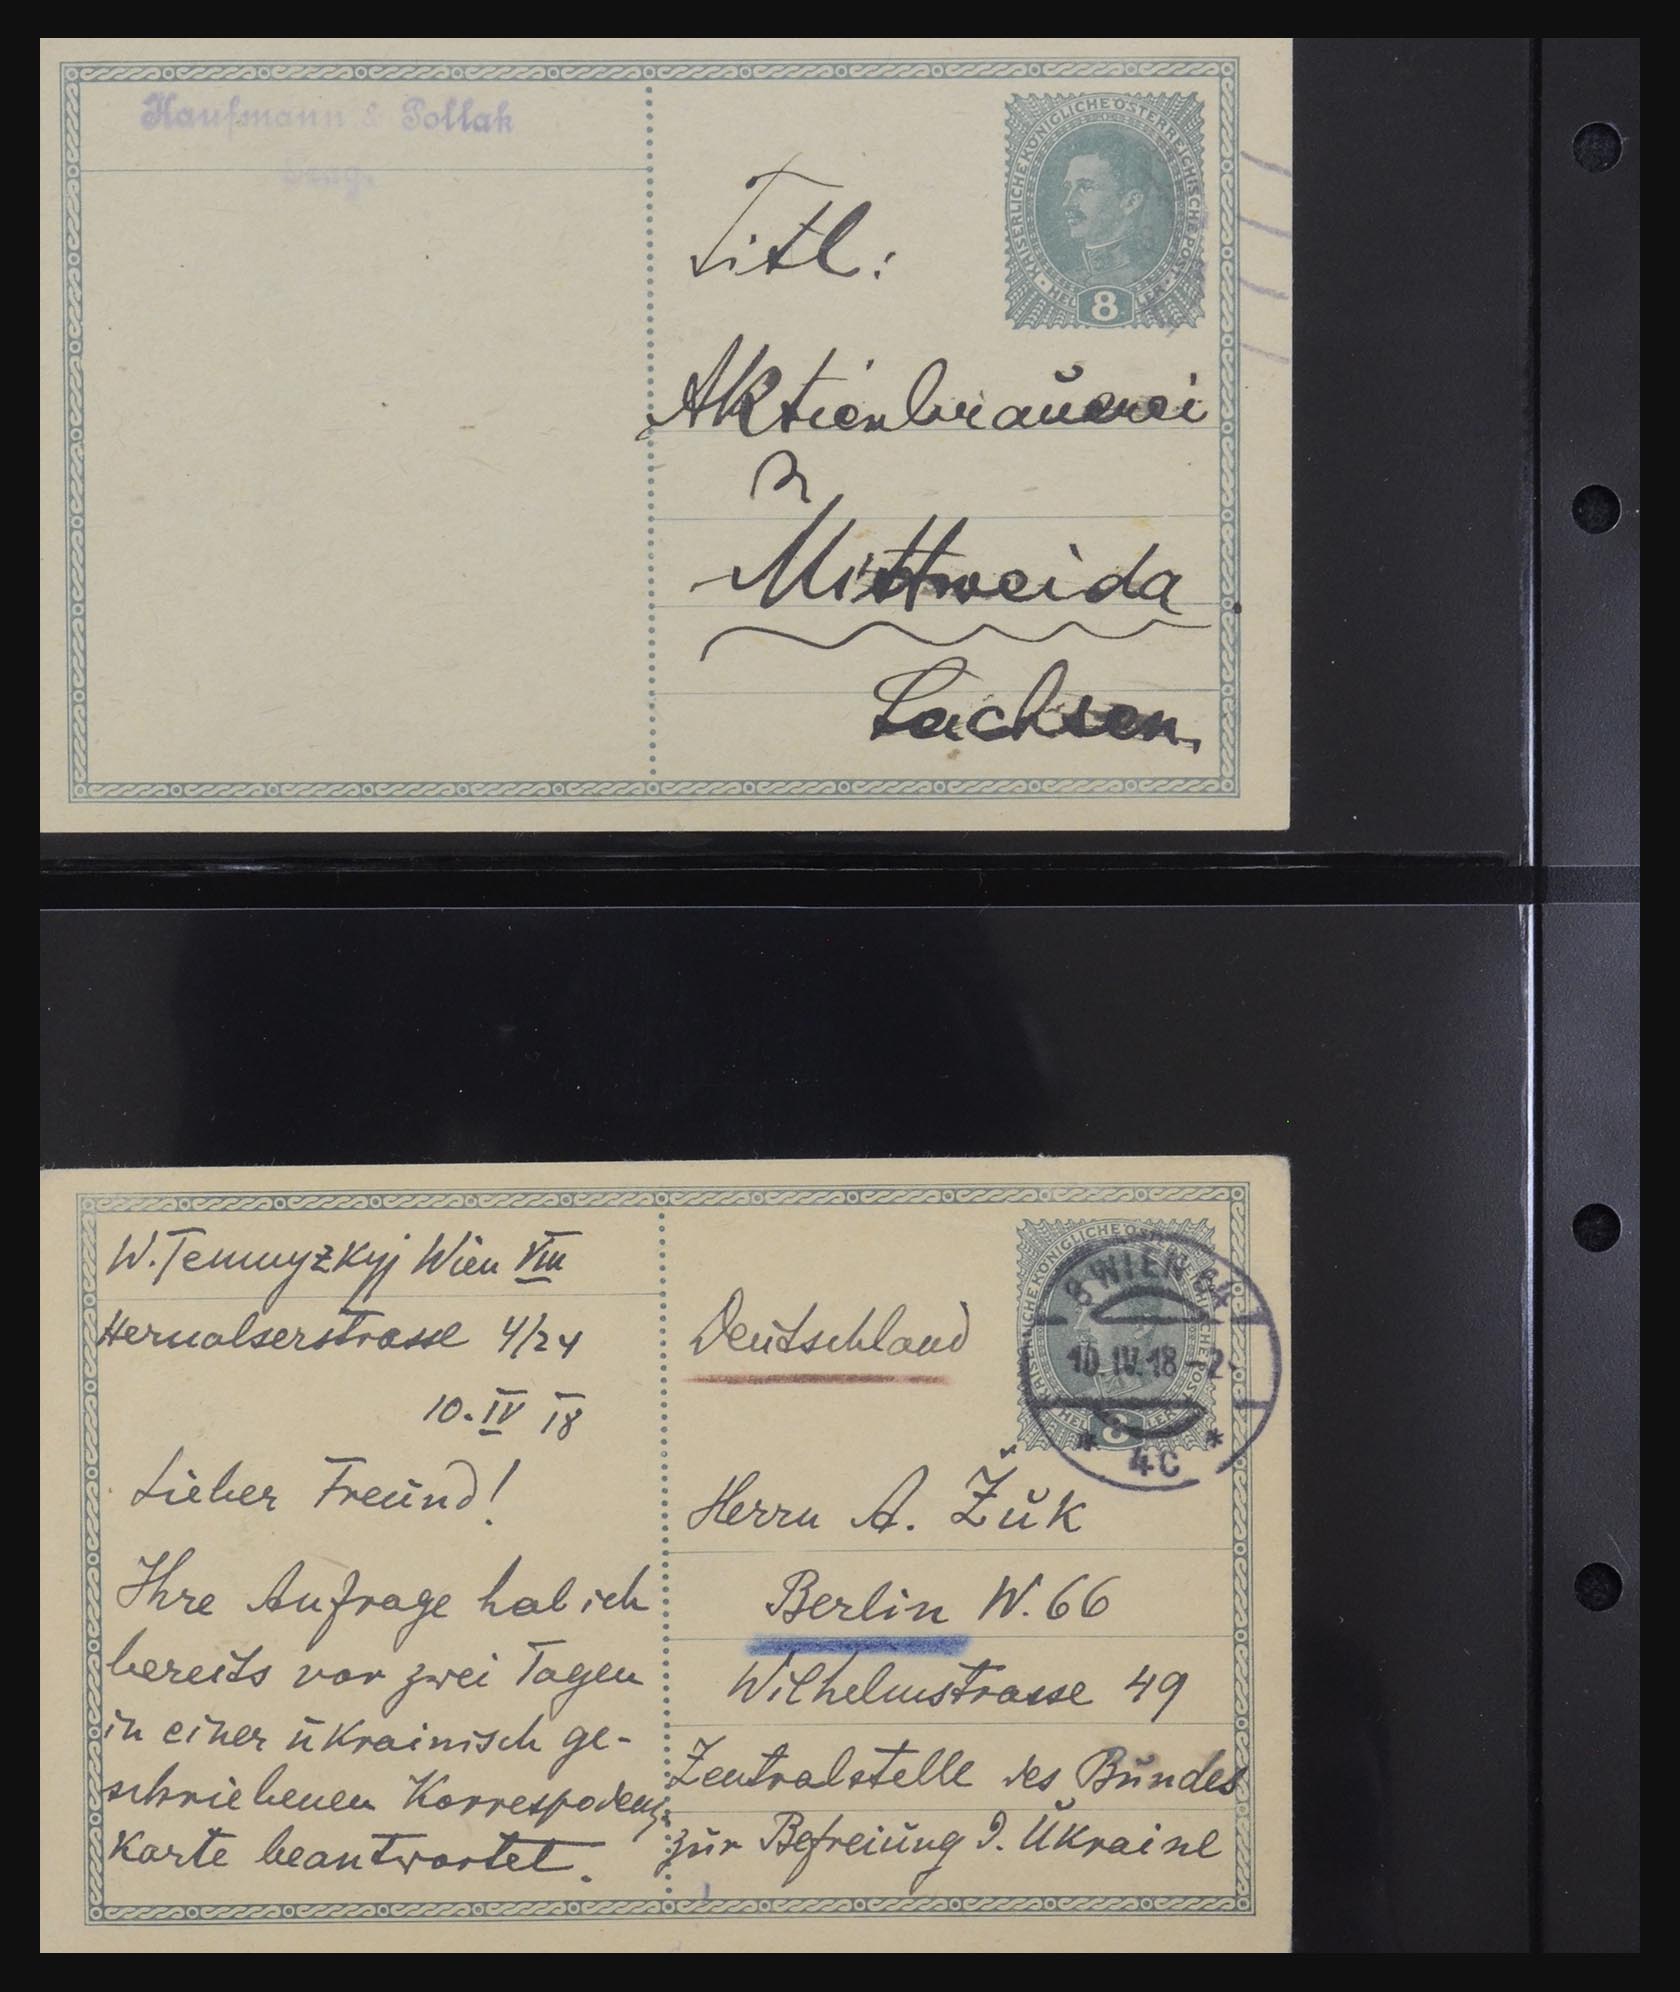 Kaufmann & Pollak
KAISERLICHE KÖNIGLICHE ÖSTERREICHISCHE POST
8
Titl:
Aktienbrauerei
Mittweida.
Sachsen.
W. Temnyzkyj Wien VIII
Hernalserstrasse 4/24
10. IV 18
Lieber Freund!
Ihre Anfrage hab ich
bereits vor zwei Tagen
in einer ukrainisch ge-
schriebenen Korrespodenz
Karte beantwortet.
8 WIEN 64
10.IV.18 - 2
* 4c *
Deutschland
Herrn A. Žuk
Berlin W. 66
Wilhelmstrasse 49
Zentralstelle des Bundes
zur Befreiung d. Ukraine